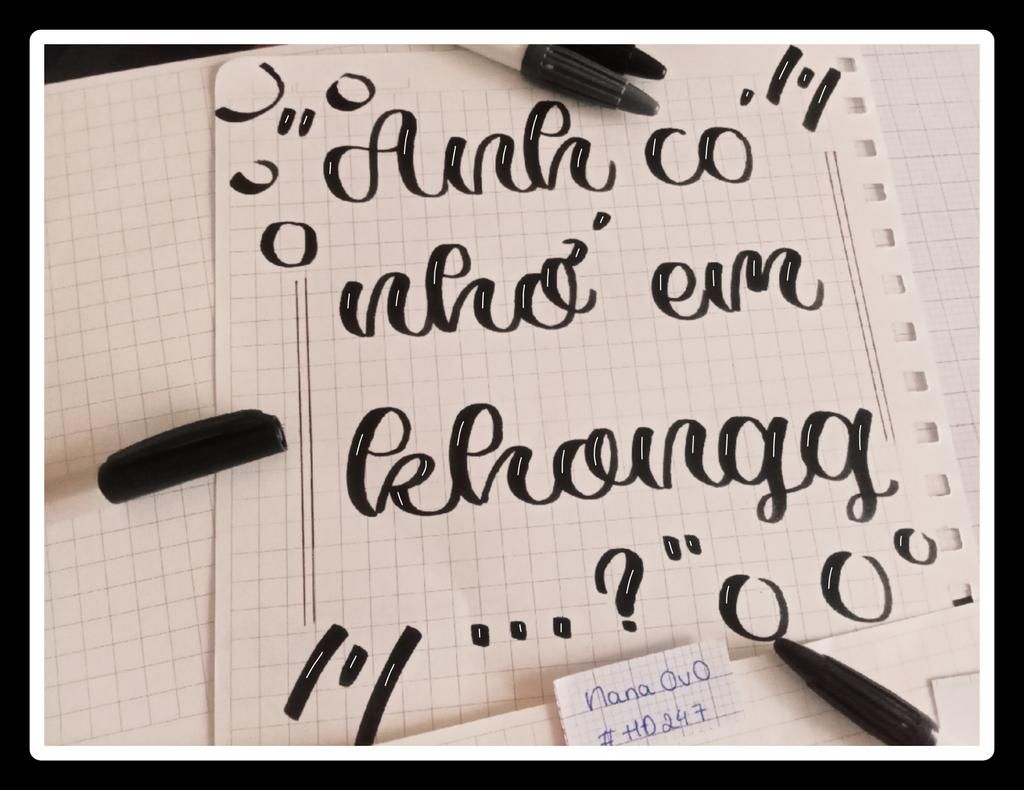 "Anh co
nhớ em
khongg
...?"
Nana OvO
#HD247